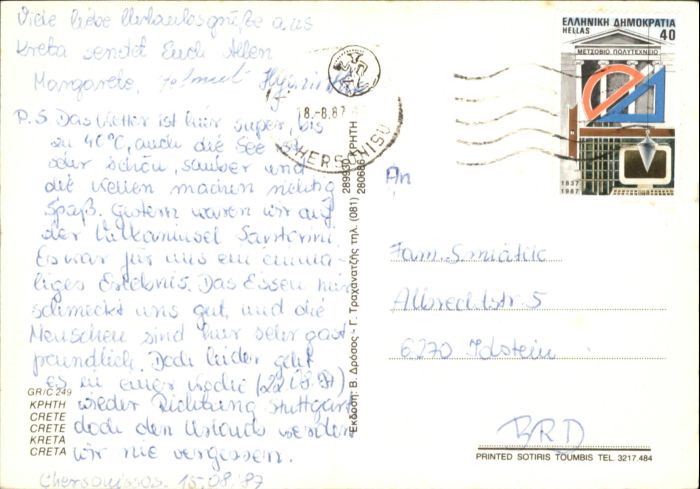 Viele liebe Urlaubsgrüße aus
Kreta sendet Euch Allen
Margarete, Helmut
P.S Das Wetter ist hier super, bis
zu 40°C, auch die See ist
sehr schön, sauber und
die Wellen machen richtig
Spaß. Gestern waren wir auf
der Vulkaninsel Santorini.
Es war für uns ein einma-
liges Erlebnis. Das Essen hier
schmeckt uns gut, und die
Menschen sind hier sehr gast-
freundlich. Doch leider geht
es in einer Woche (22.08.87)
wieder Richtung Stuttgart
doch den Urlaub werden
wir nie vergessen.
Chersonissos. 15.08.'87
GR/C 249
ΚΡΗΤΗ
CRETE
CRETE
KRETA
CRETA
Έκδοση: Β. Δρόσος - Γ. Τραχανατζής τηλ. (081) 289930 280686 ΚΡΗΤΗ
18.-8.87
ΕΛΛΗΝΙΚΗ ΔΗΜΟΚΡΑΤΙΑ
HELLAS 40
ΜΕΤΣΟΒΙΟ ΠΟΛΥΤΕΧΝΕΙΟ
1837
1987
An
Fam. Smiatik
Albrechtstr. 5
6270 Idstein
BRD
PRINTED SOTIRIS TOUMBIS TEL. 3217.484